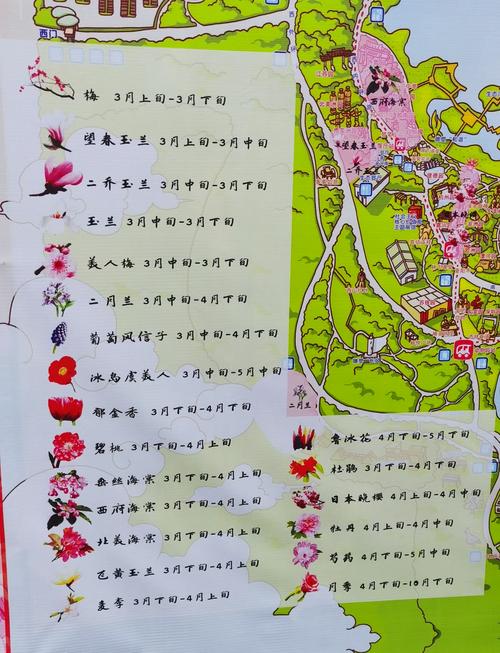 西门
梅 3月上旬-3月下旬
望春玉兰 3月上旬-3月中旬
二乔玉兰 3月中旬-3月下旬
玉兰 3月中旬-3月下旬
美人梅 3月中旬-3月下旬
二月兰 3月中旬-4月下旬
葡萄风信子 3月中旬-4月下旬
冰岛虞美人 3月中旬-5月中旬
郁金香 3月下旬-4月下旬
碧桃 3月下旬-4月上旬
垂丝海棠 3月下旬-4月上旬
西府海棠 3月下旬-4月上旬
北美海棠 3月下旬-4月上旬
飞黄玉兰 3月下旬-4月上旬
麦李 3月下旬-4月上旬
鲁冰花 4月下旬-5月下旬
杜鹃 3月下旬-4月下旬
日本晚樱 4月上旬-4月中旬
牡丹 4月上旬-4月中旬
芍药 4月下旬-5月中旬
月季 4月下旬-10月下旬
西府海棠
望春玉兰
二乔玉兰
日本晚樱
二月兰